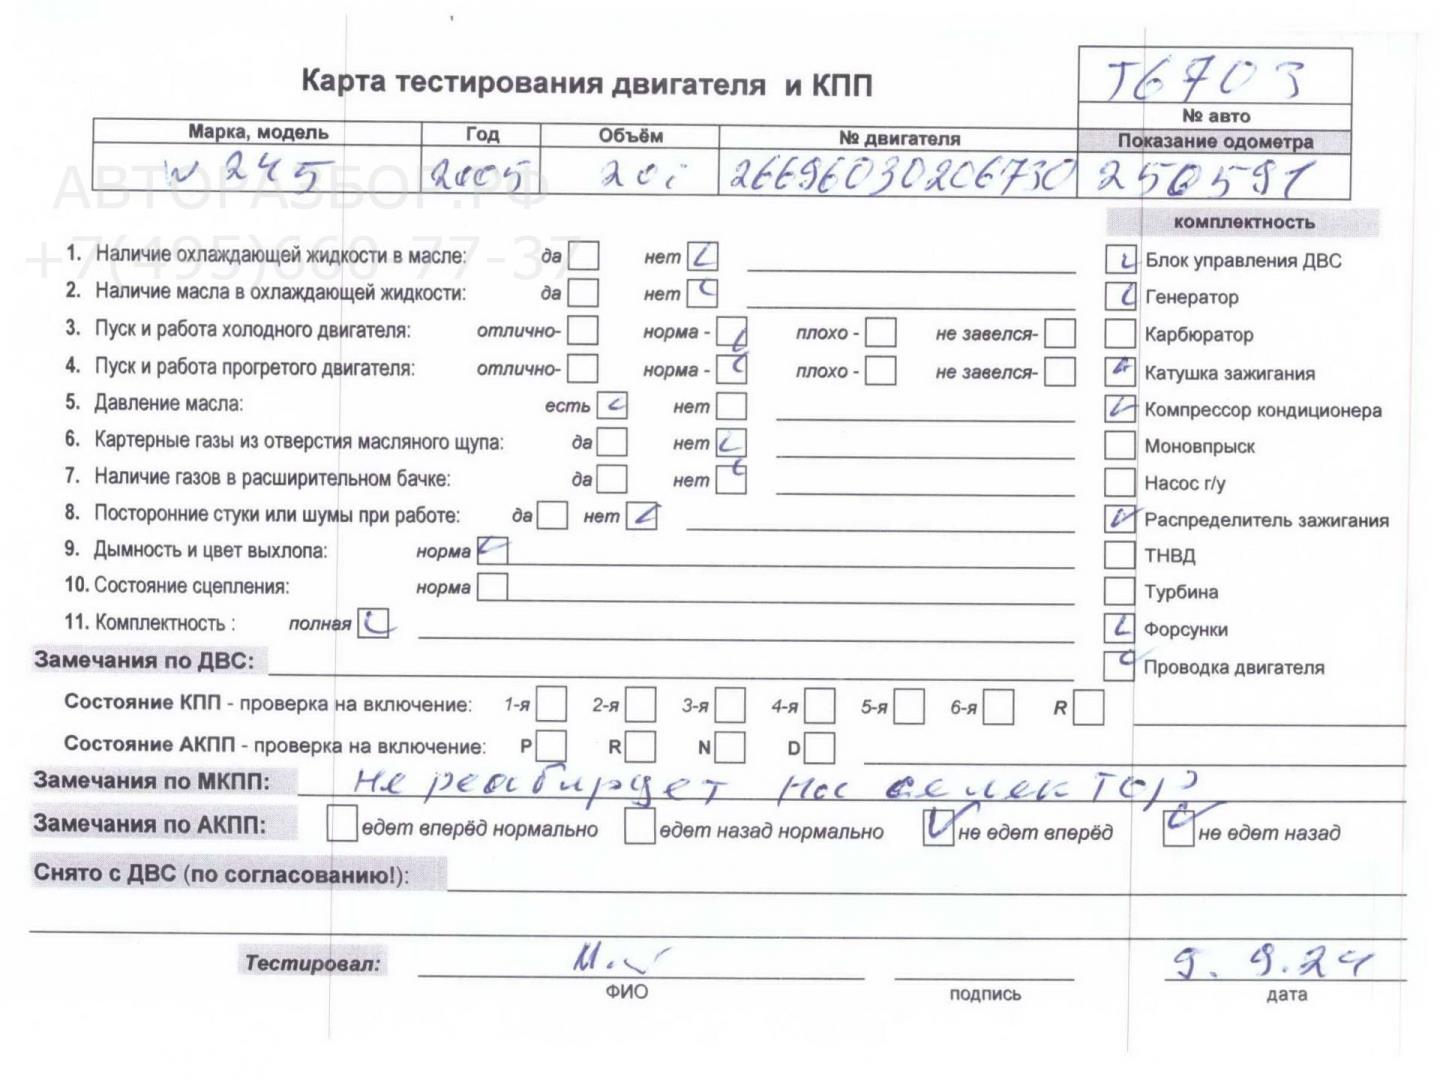 Карта тестирования двигателя и КПП
T6703
№ авто
Марка, модель Год Объём № двигателя Показание одометра
w 245 2005 20i 26696030206730 250591
АВТОРАЗБОР.РФ
+7(495)668-77-37
комплектность
1. Наличие охлаждающей жидкости в масле: да нет Блок управления ДВС
2. Наличие масла в охлаждающей жидкости: да нет Генератор
3. Пуск и работа холодного двигателя: отлично- норма - плохо - не завелся- Карбюратор
4. Пуск и работа прогретого двигателя: отлично- норма - плохо - не завелся- Катушка зажигания
5. Давление масла: есть нет Компрессор кондиционера
6. Картерные газы из отверстия масляного щупа: да нет Моновпрыск
7. Наличие газов в расширительном бачке: да нет Насос г/у
8. Посторонние стуки или шумы при работе: да нет Распределитель зажигания
9. Дымность и цвет выхлопа: норма ТНВД
10. Состояние сцепления: норма Турбина
11. Комплектность : полная Форсунки
Замечания по ДВС: Проводка двигателя
Состояние КПП - проверка на включение: 1-я 2-я 3-я 4-я 5-я 6-я R
Состояние АКПП - проверка на включение: P R N D
Замечания по МКПП: не реагирует на селектор
Замечания по АКПП: едет вперёд нормально едет назад нормально не едет вперёд не едет назад
Снято с ДВС (по согласованию!):
Тестировал: 9.9.24
ФИО подпись дата